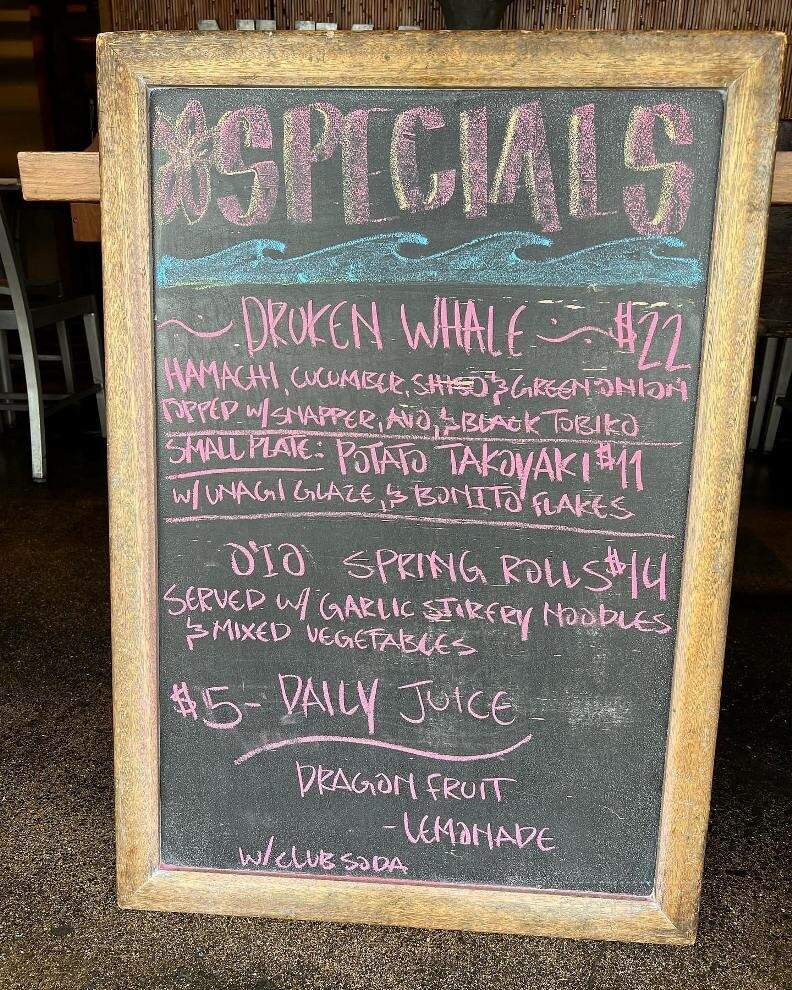 SPECIALS
DRUKEN WHALE $22
HAMACHI, CUCUMBER, SHISO & GREEN ONION
TOPPED W/ SNAPPER, AVO, & BLACK TOBIKO
SMALL PLATE: POTATO TAKOYAKI $11
W/ UNAGI GLAZE, & BONITO FLAKES
O'IO SPRING ROLLS $14
SERVED W/ GARLIC STIRFRY NOODLES
& MIXED VEGETABLES
$5- DAILY JUICE
DRAGON FRUIT
-LEMONADE
W/ CLUB SODA